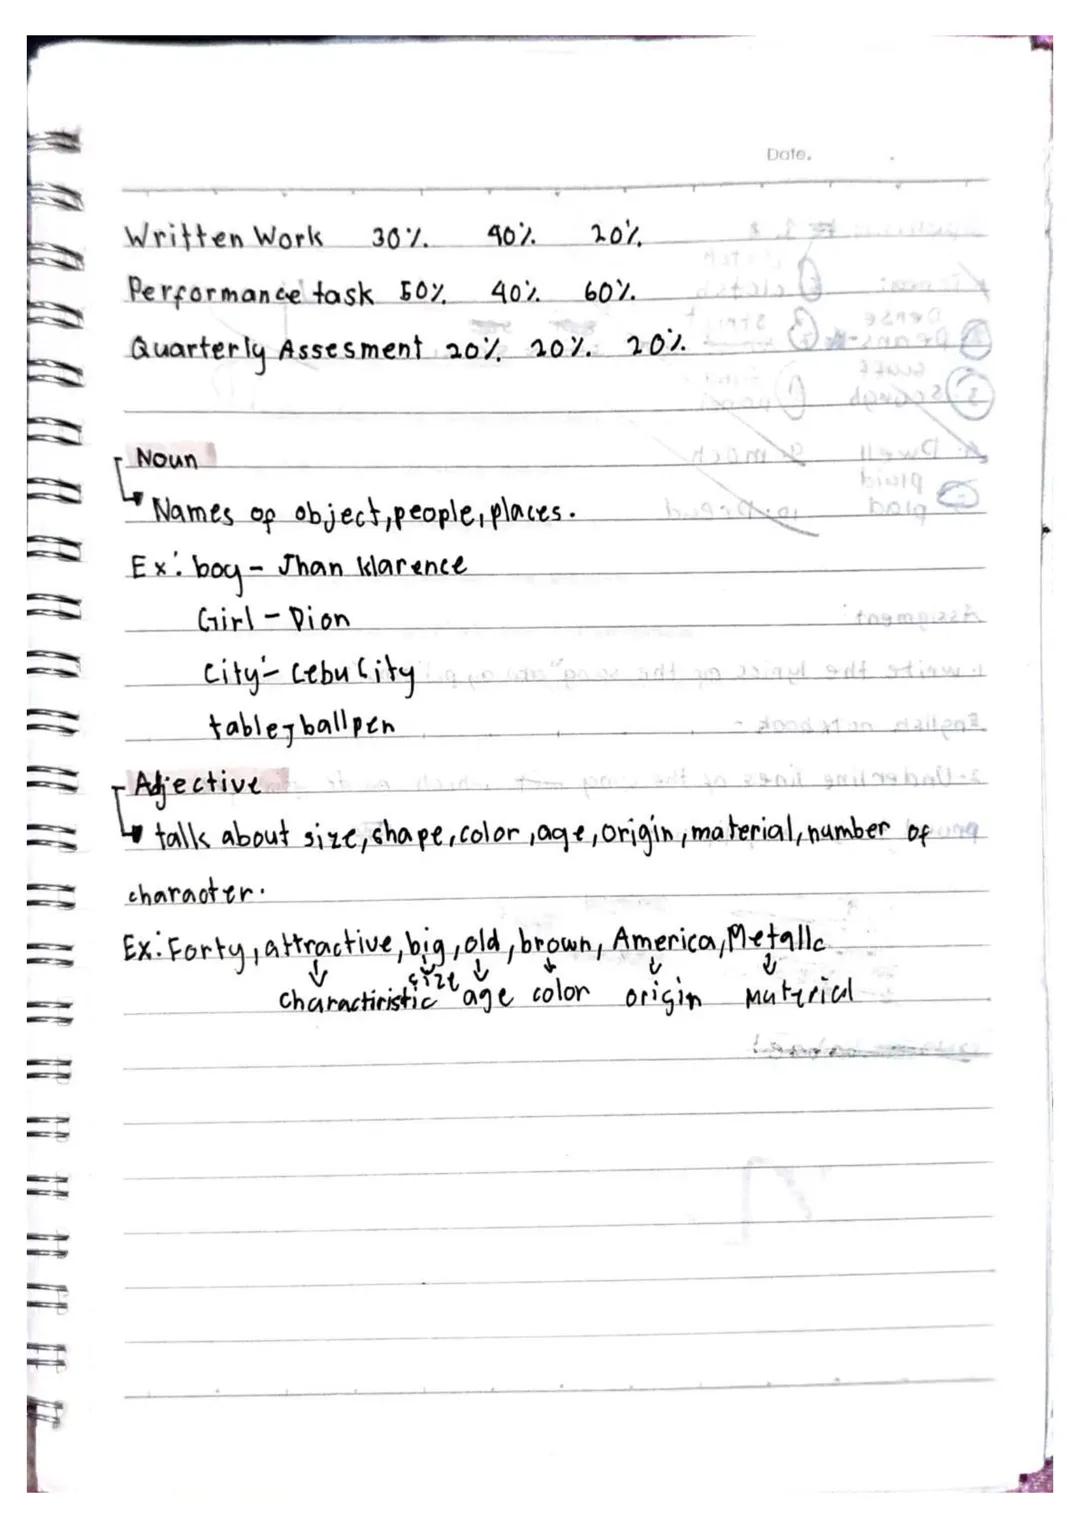 Date.
Written Work 30% 40% 20%
Performance task 50% 40% 60%
Quarterly Assesment 20% 20% 20%
Noun
Names of object, people, places.
Ex: boy - Jhan klarence
Girl - Dion
City - Cebu City
table, ballpen
Adjective
talk about size, shape, color, age, origin, material, number of
character.
Ex: Forty, attractive, big, old, brown, America, Metallc
size
charactiristic age color origin material